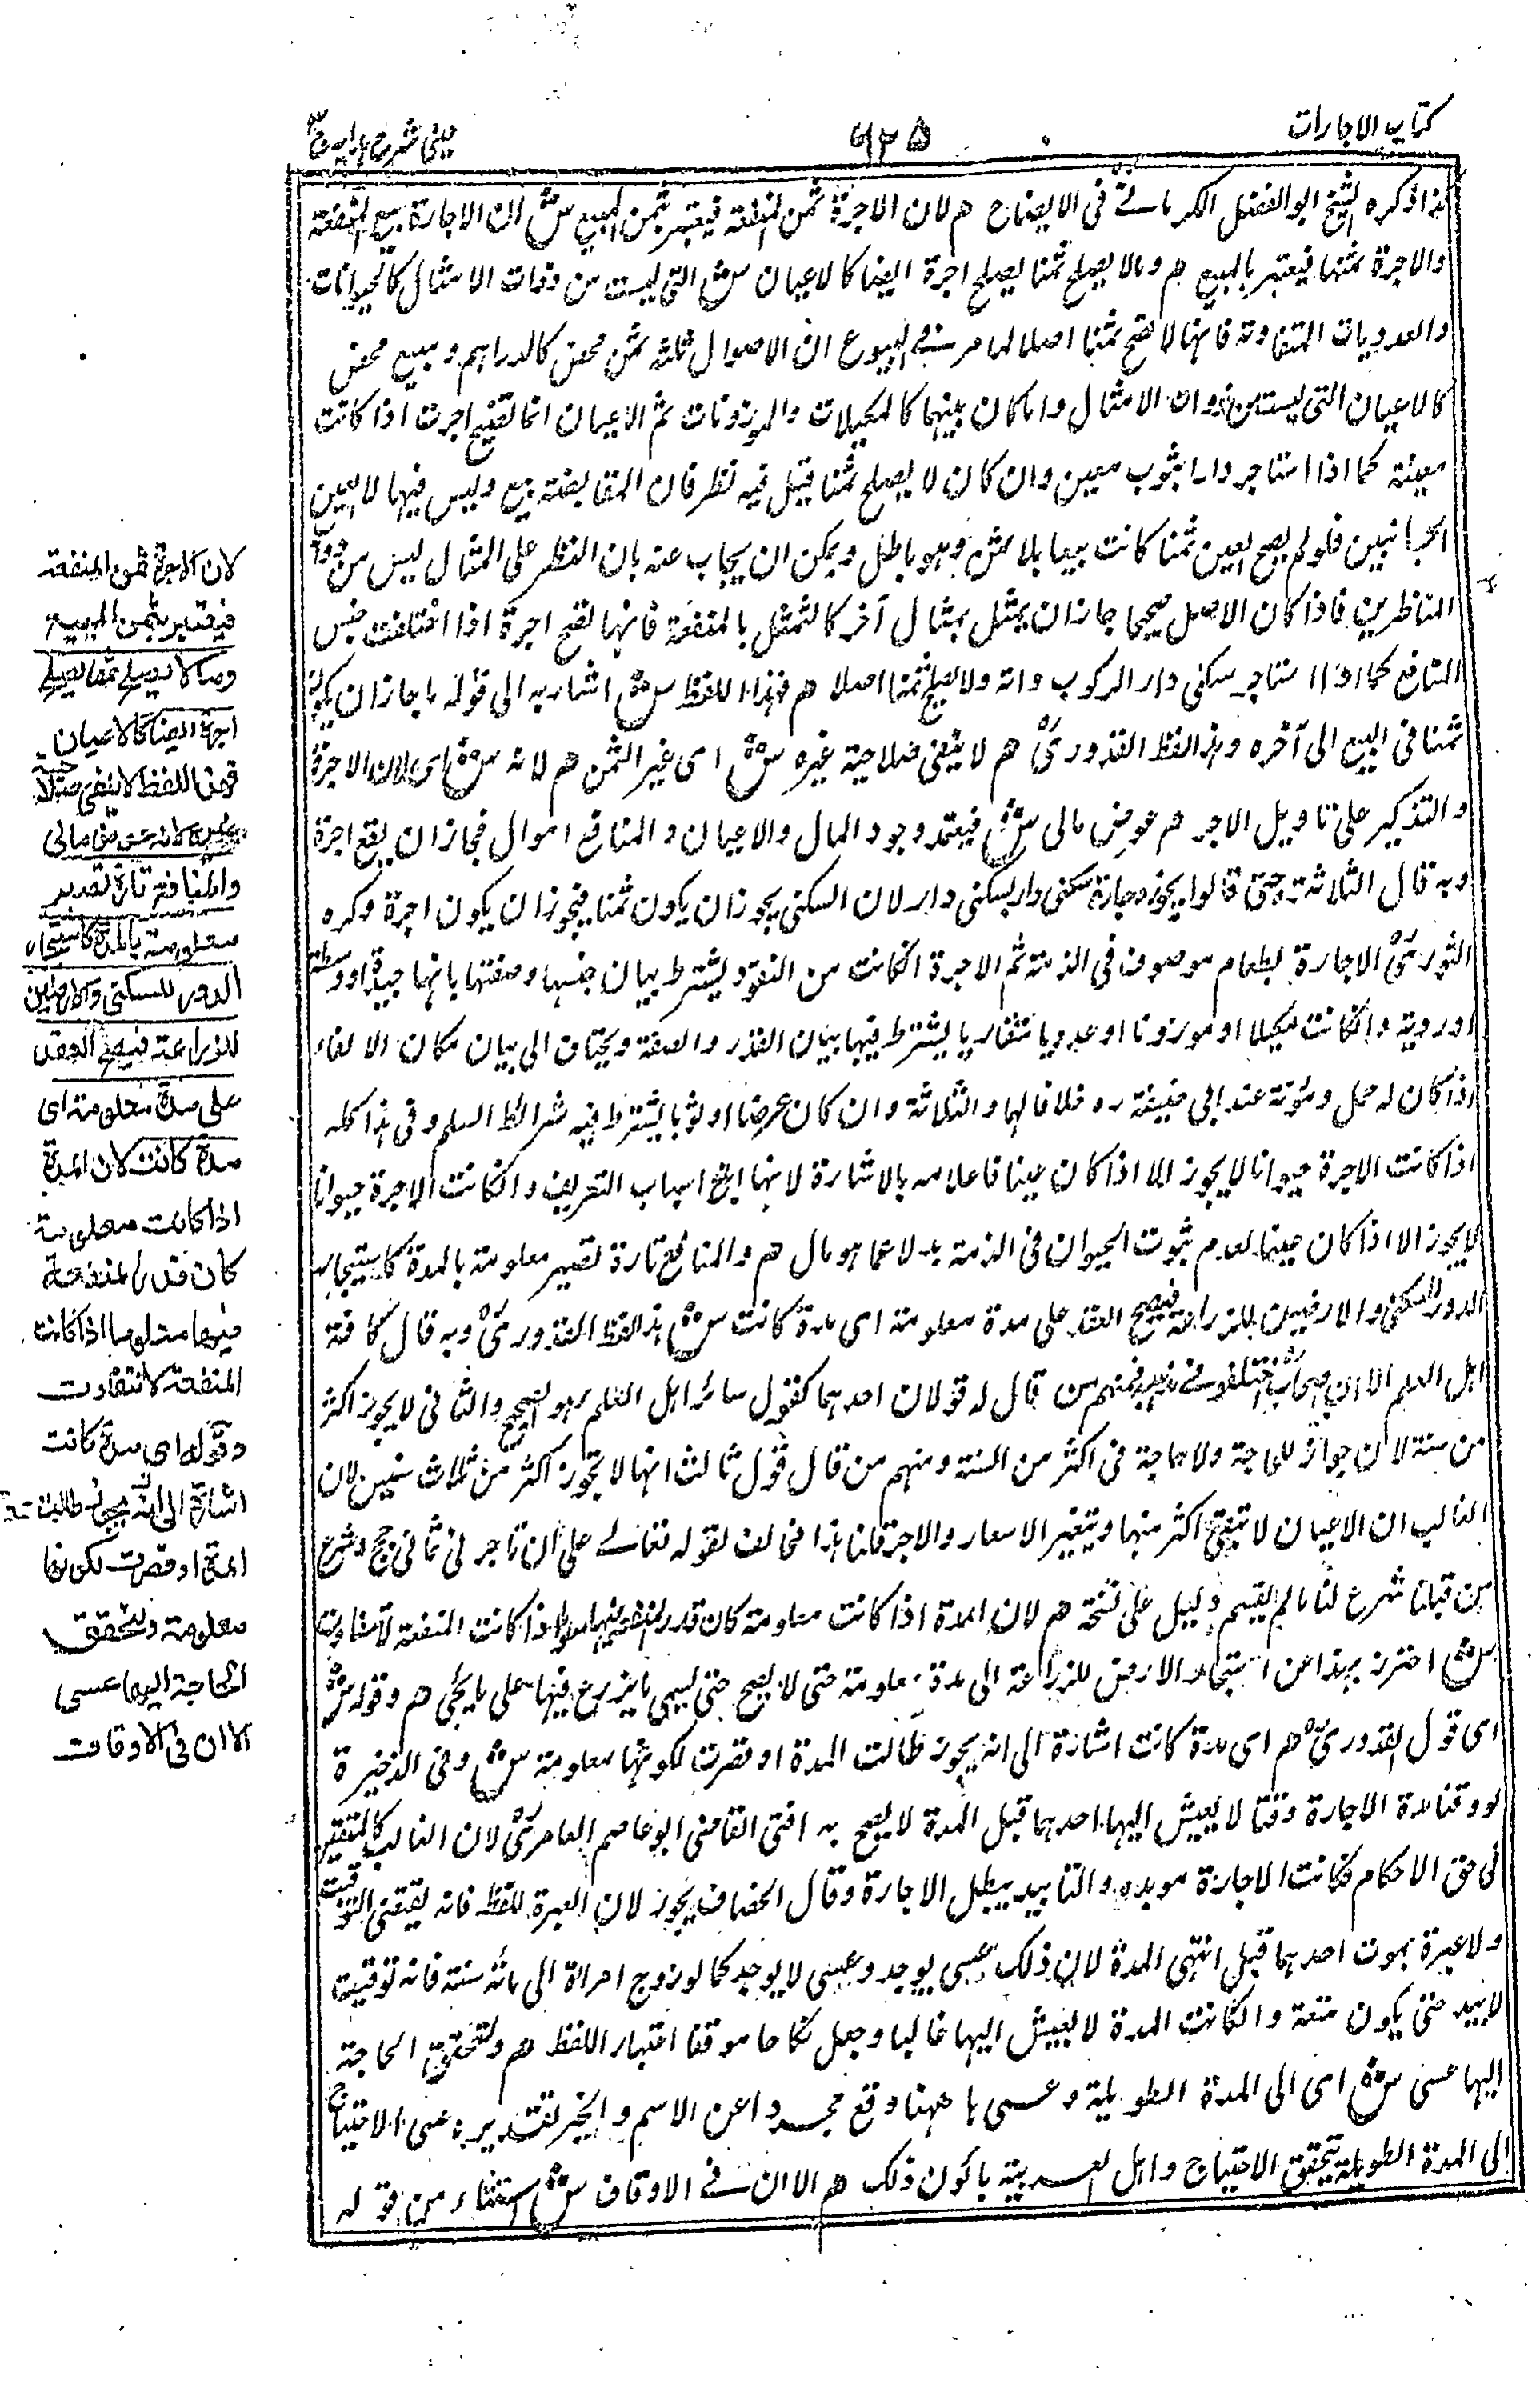 كتاب الاجارات
٦٢٥
عينى شرح هدايه ج٣
كذا ذكره الشيخ ابو الفضل الكرمانے فى الايضاح هم لان الاجرة ثمن المنفعة فيعتبر بثمن المبيع ش لان الاجارة بيع المنفعة
والاجرة ثمنها فيعتبر بالمبيع هم ومالا يصلح ثمنا يصلح اجرة ايضا كالاعيان ش التى ليست من ذوات الامثال كالحيوانات
والعدديات المتفاوتة فانها لا تصح ثمنا اصلا لما مر فے البيوع ان الاموال ثلثة ثمن محض كالدراهم ومبيع محض
كالاعيان التى ليست من ذوات الامثال وما كان بينهما كالمكيلات والموزونات ثم الاعيان انما تصح اجرت اذا كانت
معينة كما اذا استاجر دارا بثوب معين وان كان لا يصلح ثمنا قيل فيه نظر فان المقايضة بيع وليس فيها الا العين
الجانبين فلو لم يصح العين ثمنا كانت بيعا بلا ثمن وهو باطل ويمكن ان يجاب عنه بان النظر على المثال ليس من دأب
المناظرين فاذا كان الاصل صحيحا جاز ان يمثل بمثال آخر كالتمثل بالمنفعة فانها تصح اجرة اذا اختلفت جنس
المنافع كما اذا استاجر سكنى دار الركوب دابة ولا يصلح ثمنا اصلا هم فهذا اللفظ ش اشار به الى قوله ما جاز ان يكون
ثمنا فى البيع الى آخره وهذا لفظ القدورىؒ هم لا ينفى صلاحية غيره ش اى غير الثمن هم لانه ش اى لان الاجرة
والتذكير على تاويل الاجر هم عوض مالى ش فيعتمد وجود المال والاعيان والمنافع اموال فجاز ان يقع اجرة
وبه قال الثلاثة حتى قالوا يجوز اجارة سكنى دار بسكنى دار لان السكنى يجوز ان يكون ثمنا فيجوز ان يكون اجرة وكره
الثورىؒ الاجارة بطعام موصوف فى الذمة ثم الاجرة انكانت من النقود يشترط بيان جنسها وصفتها بانها جيدة او وسطة
او ردية وانكانت مكيلا او موزونا او عدديا متقاربا يشترط فيها بيان القدر والصفة ويحتاج الى بيان مكان الايفاء
اذا كان له حمل ومؤنة عند ابى حنيفة ره خلافا لهما والثلاثة وان كان عرضا او ثوبا يشترط فيه شرائط السلم وفى هذا كله
اذا كانت الاجرة حيوانا لا يجوز الا اذا كان عينا فاعلامه بالاشارة لانها ابلغ اسباب التعريف وانكانت الاجرة حيوانا
لا يجوز الا اذا كان معينا لعدم ثبوت الحيوان فى الذمة بدلا عما هو مال هم والمنافع تارة تصير معلومة بالمدة كاستيجار
الدور للسكنى والارضين للزراعة فيصح العقد على مدة معلومة اى مدة كانت ش هذا لفظ القدورىؒ وبه قال كافة
اهل العلم الا ان اصحاب الشافعى اختلفوا فے مذهبه فمنهم من قال له قولان احدهما كقول سائر اهل العلم وهو الصحيح والثانى لا يجوز اكثر
من سنة لان جوازه للحاجة ولا حاجة فى اكثر من السنة ومنهم من قال قول ثالث انها لا تجوز اكثر من ثلاث سنين لان
الغالب ان الاعيان لا تبقى اكثر منها وتتغير الاسعار والاجر قلنا هذا مخالف لقوله تعالے على ان تاجرنى ثمانى حجج وشرع
من قبلنا شرع لنا مالم يقم دليل على نسخه هم لان المدة اذا كانت معلومة كان قدر المنفعة فيها معلوما اذا كانت المنفعة لا تتفاوت
ش احترز بهذا عن استيجار الارض للزراعة الى مدة معلومة حتى لا يصح حتى يسمى ما يزرع فيها على ما يجئ هم وقوله ش
اى قول القدورىؒ هم اى مدة كانت اشارة الى انه يجوز طالت المدة او قصرت لكونها معلومة ش وفى الذخيرة
لو وقتا مدة الاجارة وقتا لا يعيش اليها احدهما قبل المدة لا يصح به افتى القاضى ابو عاصم العامرىؒ لان الغالب كالمتيقن
فى حق الاحكام فكانت الاجارة موبده والتابيد يبطل الاجارة وقال الخصاف يجوز لان العبرة للفظ فانه يقتضى التوقيت
ولا عبرة بموت احدهما قبل انتهى المدة لان ذلك عسى يوجد وعسى لا يوجد كما لو زوج امراة الى مائة سنة فانه توقيت
لابيد حتى يكون متعة وانكانت المدة لا يعيش اليها غالبا وجعل نكاحا موقتا اعتبار اللفظ هم ولتحقق الحاجة
اليها عسى ش اى الى المدة الطويلة وعسى ها ههنا وقع مجردا عن الاسم والخبر تقديره عسى الاحتياج
الى المدة الطويلة يتحقق الاحتياج واهل العربية يابون ذلك هم الا ان فے الاوقاف ش استثناء من قوله
لان الاجرة ثمن المنفعة
فيعتبر بثمن المبيع
ومالا يصلح ثمنا يصلح
اجرة ايضا كالاعيان
فهذا اللفظ لا ينفى صلاحية
غيره لانه عوض مالى
والمنافع تارة تصير
معلومة بالمدة كاستيجار
الدور للسكنى والارضين
للزراعة فيصح العقد
على مدة معلومة اى
مدة كانت لان المدة
اذا كانت معلومة
كان قدر المنفعة
فيها معلوما اذا كانت
المنفعة لا تتفاوت
وقوله اى مدة كانت
اشارة الى انه يجوز طالت
المدة او قصرت لكونها
معلومة ولتحقق
الحاجة اليها عسى
الا ان فى الاوقاف